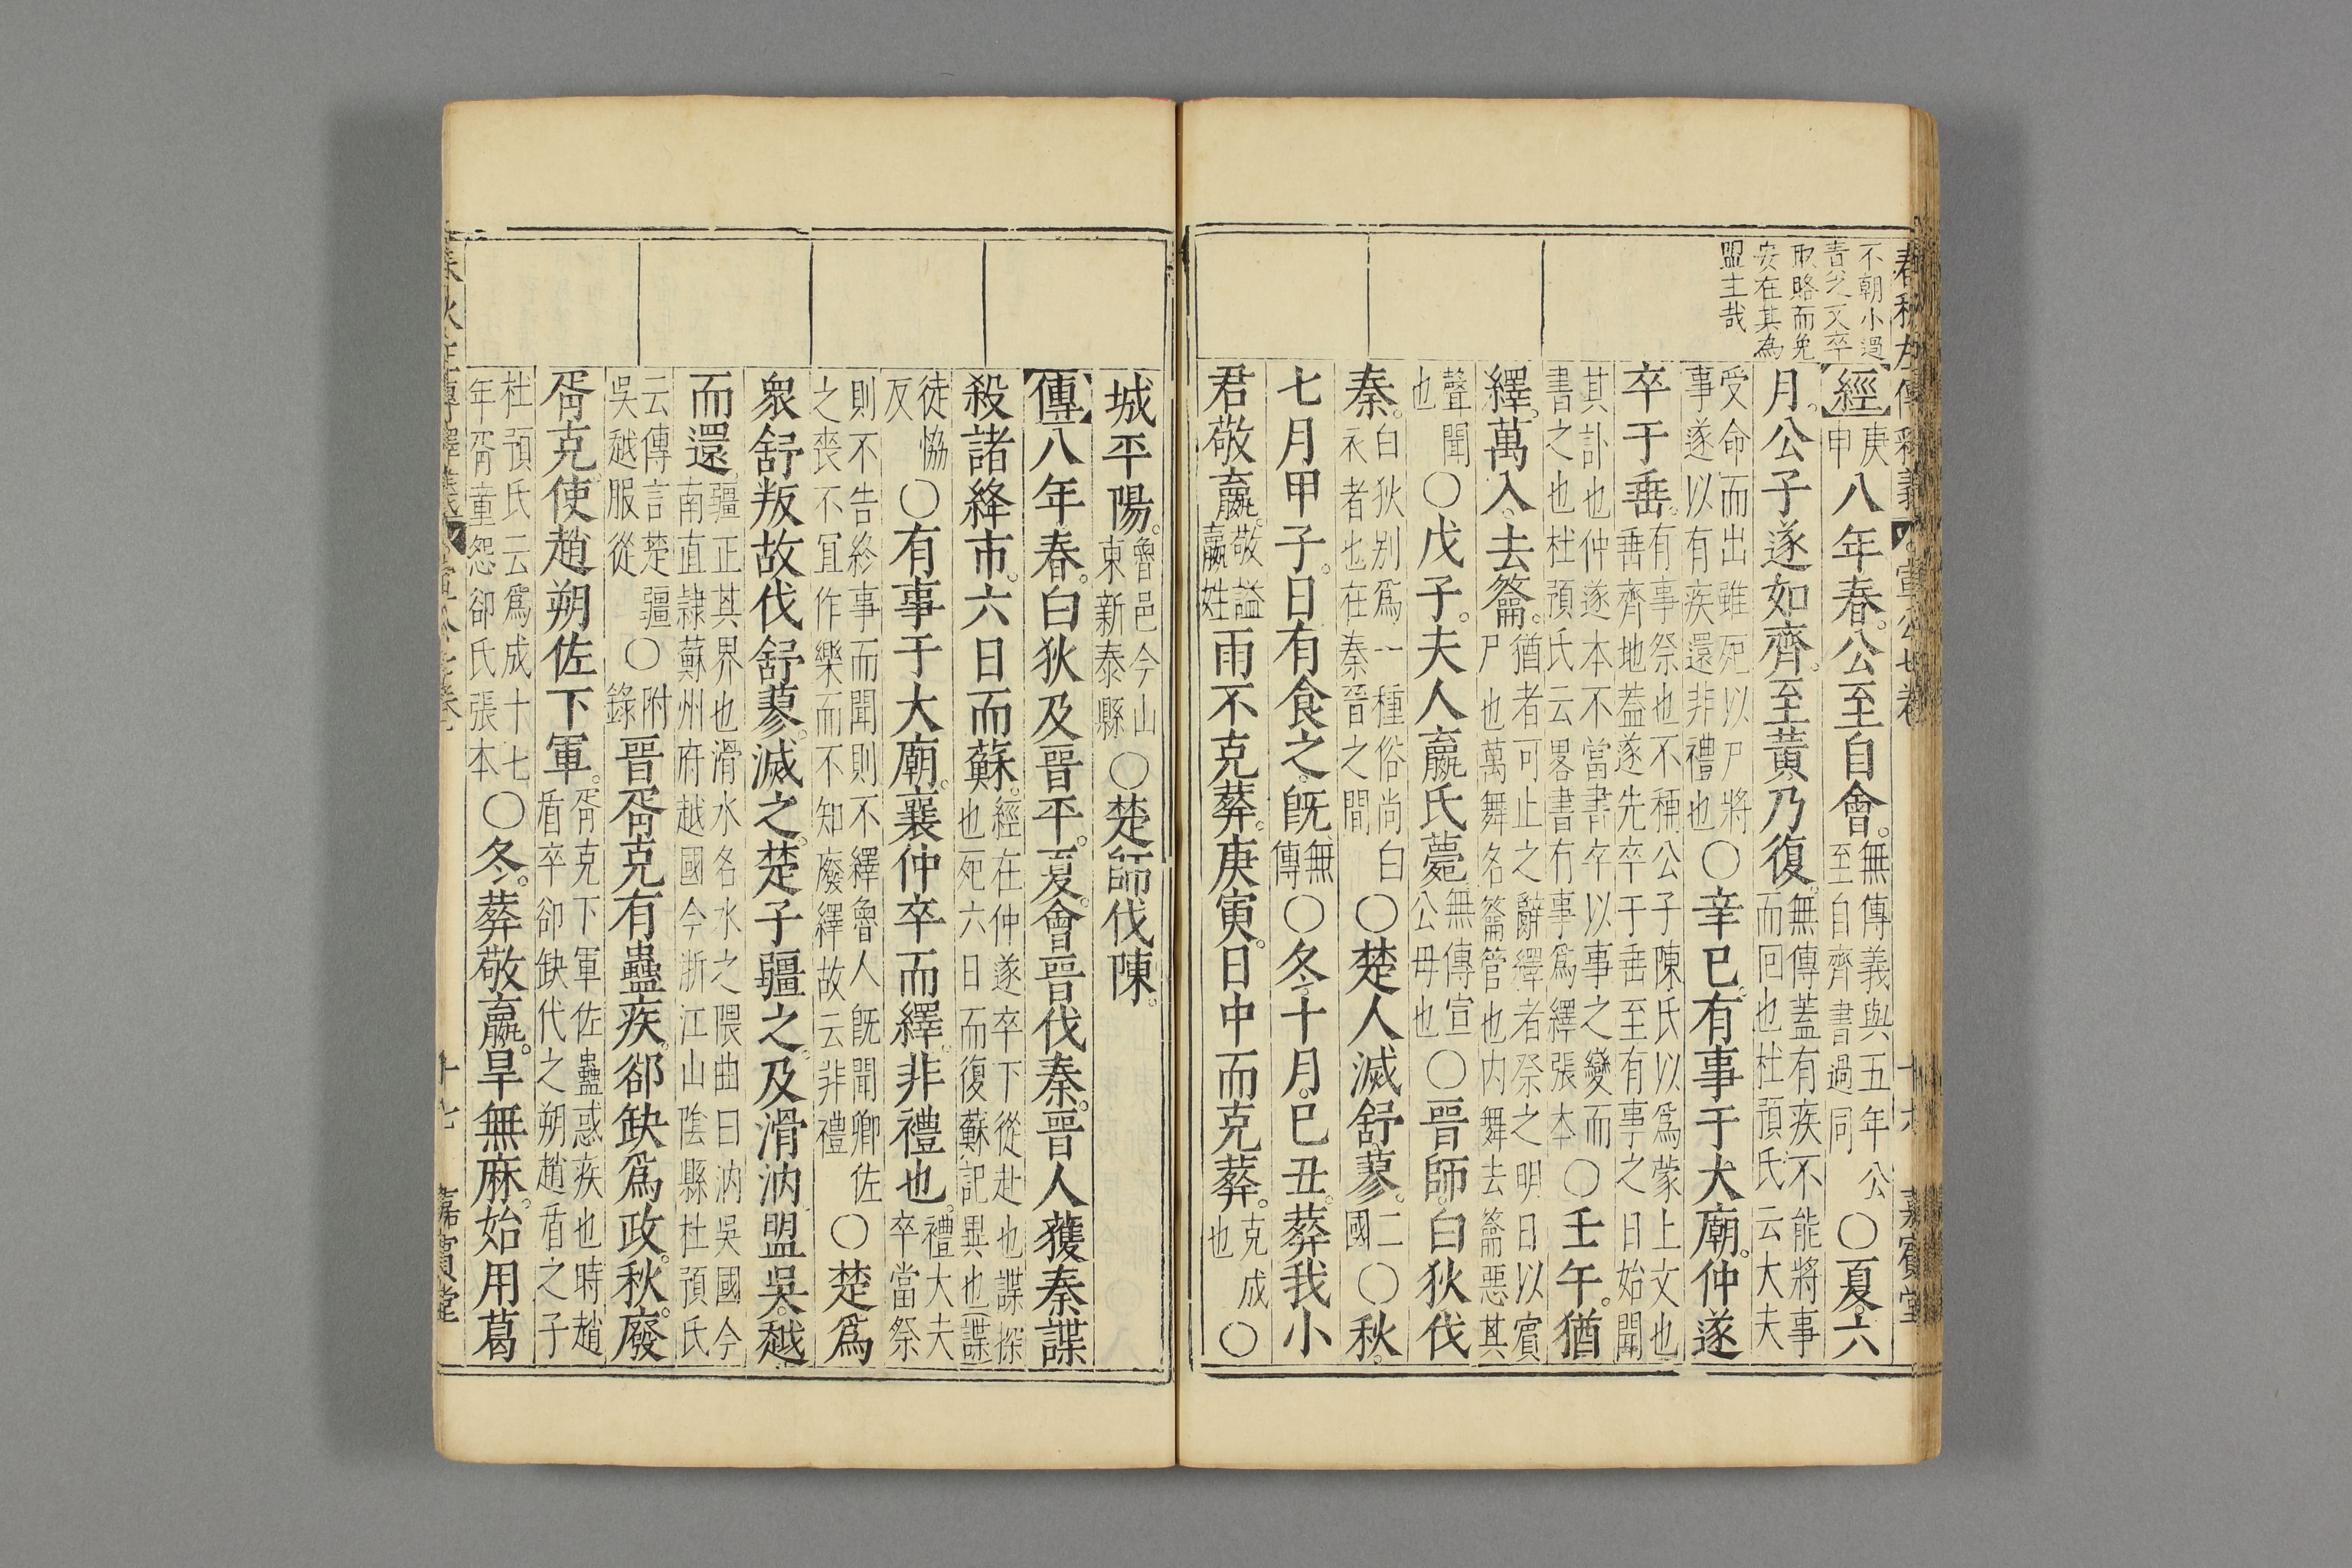 春秋左傳釋義
宣公七卷
十六
嘉賓堂
不朝小過
取賂而免
安在其為
盟主哉
經庚申八年春。公至自會。無傳義與五年公至自齊書過同○夏。六
月。公子遂如齊。至黃乃復。無傳蓋有疾不能將事而回也杜預氏云大夫
受命而出雖死以尸將事遂以有疾還非禮也○辛巳。有事于大廟。仲遂
卒于垂。有事祭也不稱公子陳氏以為蒙上文也垂齊地蓋遂先卒于垂至有事之日始聞
其訃也仲遂本不當書卒以事之變而書之也杜預氏云畧書有事爲繹張本○壬午。猶
繹。萬入。去籥。猶者可止之辭繹者祭之明日以賓尸也萬舞名籥管也內舞去籥惡其
聲聞也○戊子。夫人嬴氏薨。無傳宣公母也○晉師。白狄伐
秦。白狄別爲一種俗尚白衣者也在秦晉之間○楚人滅舒蓼。二國○秋。
七月甲子。日有食之。旣。無傳○冬。十月。己丑。葬我小
君敬嬴。敬謚嬴姓雨不克葬。庚寅。日中而克葬。克成也○
城平陽。魯邑今山東新泰縣○楚師伐陳。
傳八年春。白狄及晉平。夏。會晉伐秦。晉人獲秦諜
殺諸絳市。六日而蘇。經在仲遂卒下從赴也諜探也死六日而復蘇記異也諜
徒恊反○有事于大廟。襄仲卒而繹。非禮也。禮大夫卒當祭
則不告終事而聞則不繹魯人旣聞卿佐之喪不宜作樂而不知廢繹故云非禮○楚爲
衆舒叛故伐舒蓼。滅之。楚子疆之。及滑汭盟吳。越
而還。疆正其界也滑水名水之隈曲曰汭吳國今南直隸蘇州府越國今浙江山陰縣杜預氏
云傳言楚疆吳越服從○附錄晉胥克有蠱疾。郤缺爲政。秋。廢
胥克。使趙朔佐下軍。胥克下軍佐蠱惑疾也時趙盾卒郤缺代之朔趙盾之子
杜預氏云爲成十七年胥童怨郤氏張本○冬。葬敬嬴。旱無麻。始用葛
十七
嘉賓堂